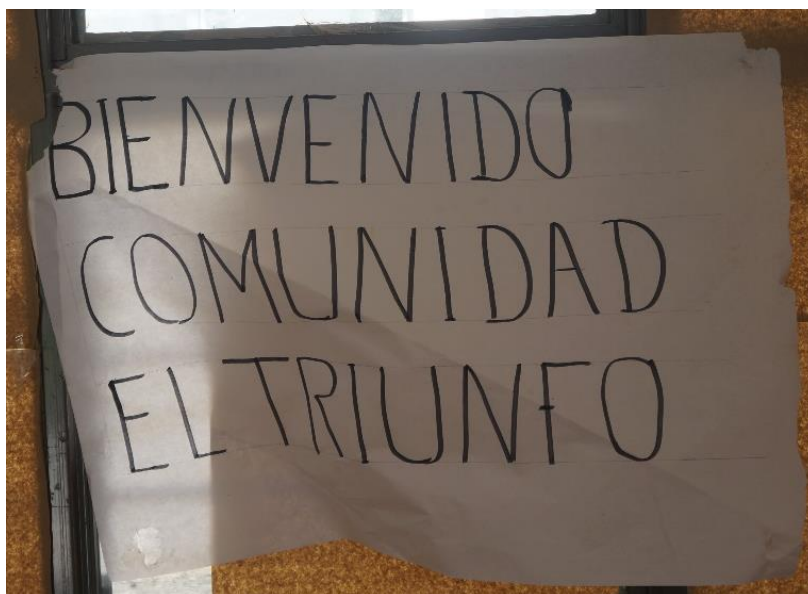 BIENVENIDO
COMUNIDAD
EL TRIUNFO